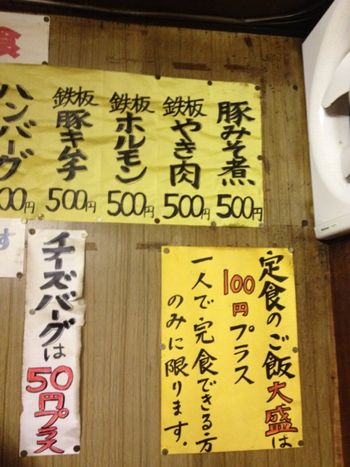 豚みそ煮
500円
鉄板
やき肉
500円
鉄板
ホルモン
500円
鉄板
豚キムチ
500円
ハンバーグ
500円
定食のご飯大盛は
100円プラス
一人で完食できる方
のみに限ります.
チーズバーグは
50円プラス
す